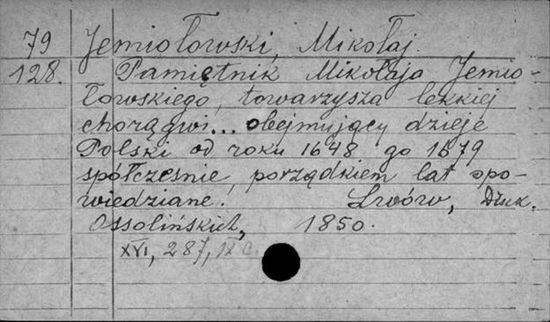 79 Jemiołowski, Mikołaj.
128. Pamiętnik Mikołaja Jemio-
łowskiego, towarzysza lekkiej
chorągwi... obejmujący dzieje
Polski od roku 1648 do 1679
spółcześnie, porządkiem lat opo-
wiedziane. Lwów, Druk.
Ossolińskich, 1850.
XVI, 287,